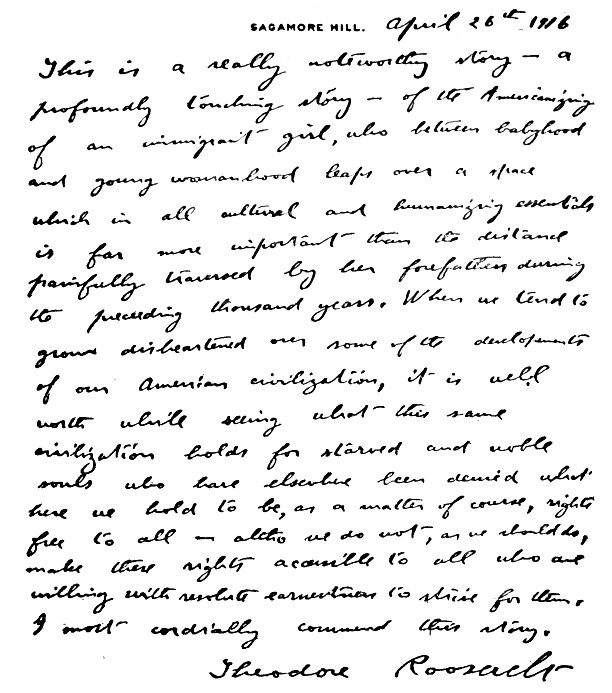 SAGAMORE HILL. April 26th 1916
This is a really noteworthy story — a
profoundly touching story — of the Americanizing
of an immigrant girl, who between babyhood
and young womanhood leaps over a space
which in all cultural and humanizing essentials
is far more important than the distance
painfully traversed by her forefathers during
the preceding thousand years. When we tend to
grow disheartened over some of the developments
of our American civilization, it is well
worth while seeing what this same
civilization holds for starved and noble
souls who have elsewhere been denied what
here we hold to be, as a matter of course, rights
free to all — altho we do not, as we should do,
make these rights accessible to all who are
willing with resolute earnestness to strive for them.
I most cordially commend this story.
Theodore Roosevelt